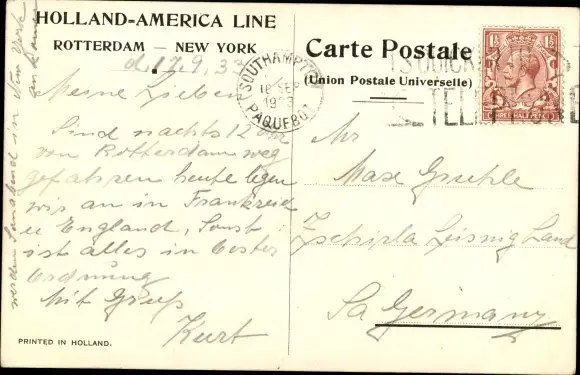 HOLLAND-AMERICA LINE
ROTTERDAM — NEW YORK
d. 17.9.33
Meine Lieben
Sind nachts 12 Uhr
von Rotterdam weg
gefahren heute legen
wir an in Frankreich
u England, Sonst
ist alles in bester
Ordnung
Mit Gruß
Kurt
werden Sonabend in New York
PRINTED IN HOLLAND.
Carte Postale
(Union Postale Universelle)
SOUTHAMPTON
SEP
PAQUEBOT
QUICK
TEL
THREE HALF PENCE
Max
Leisnig Land
Sa Germany